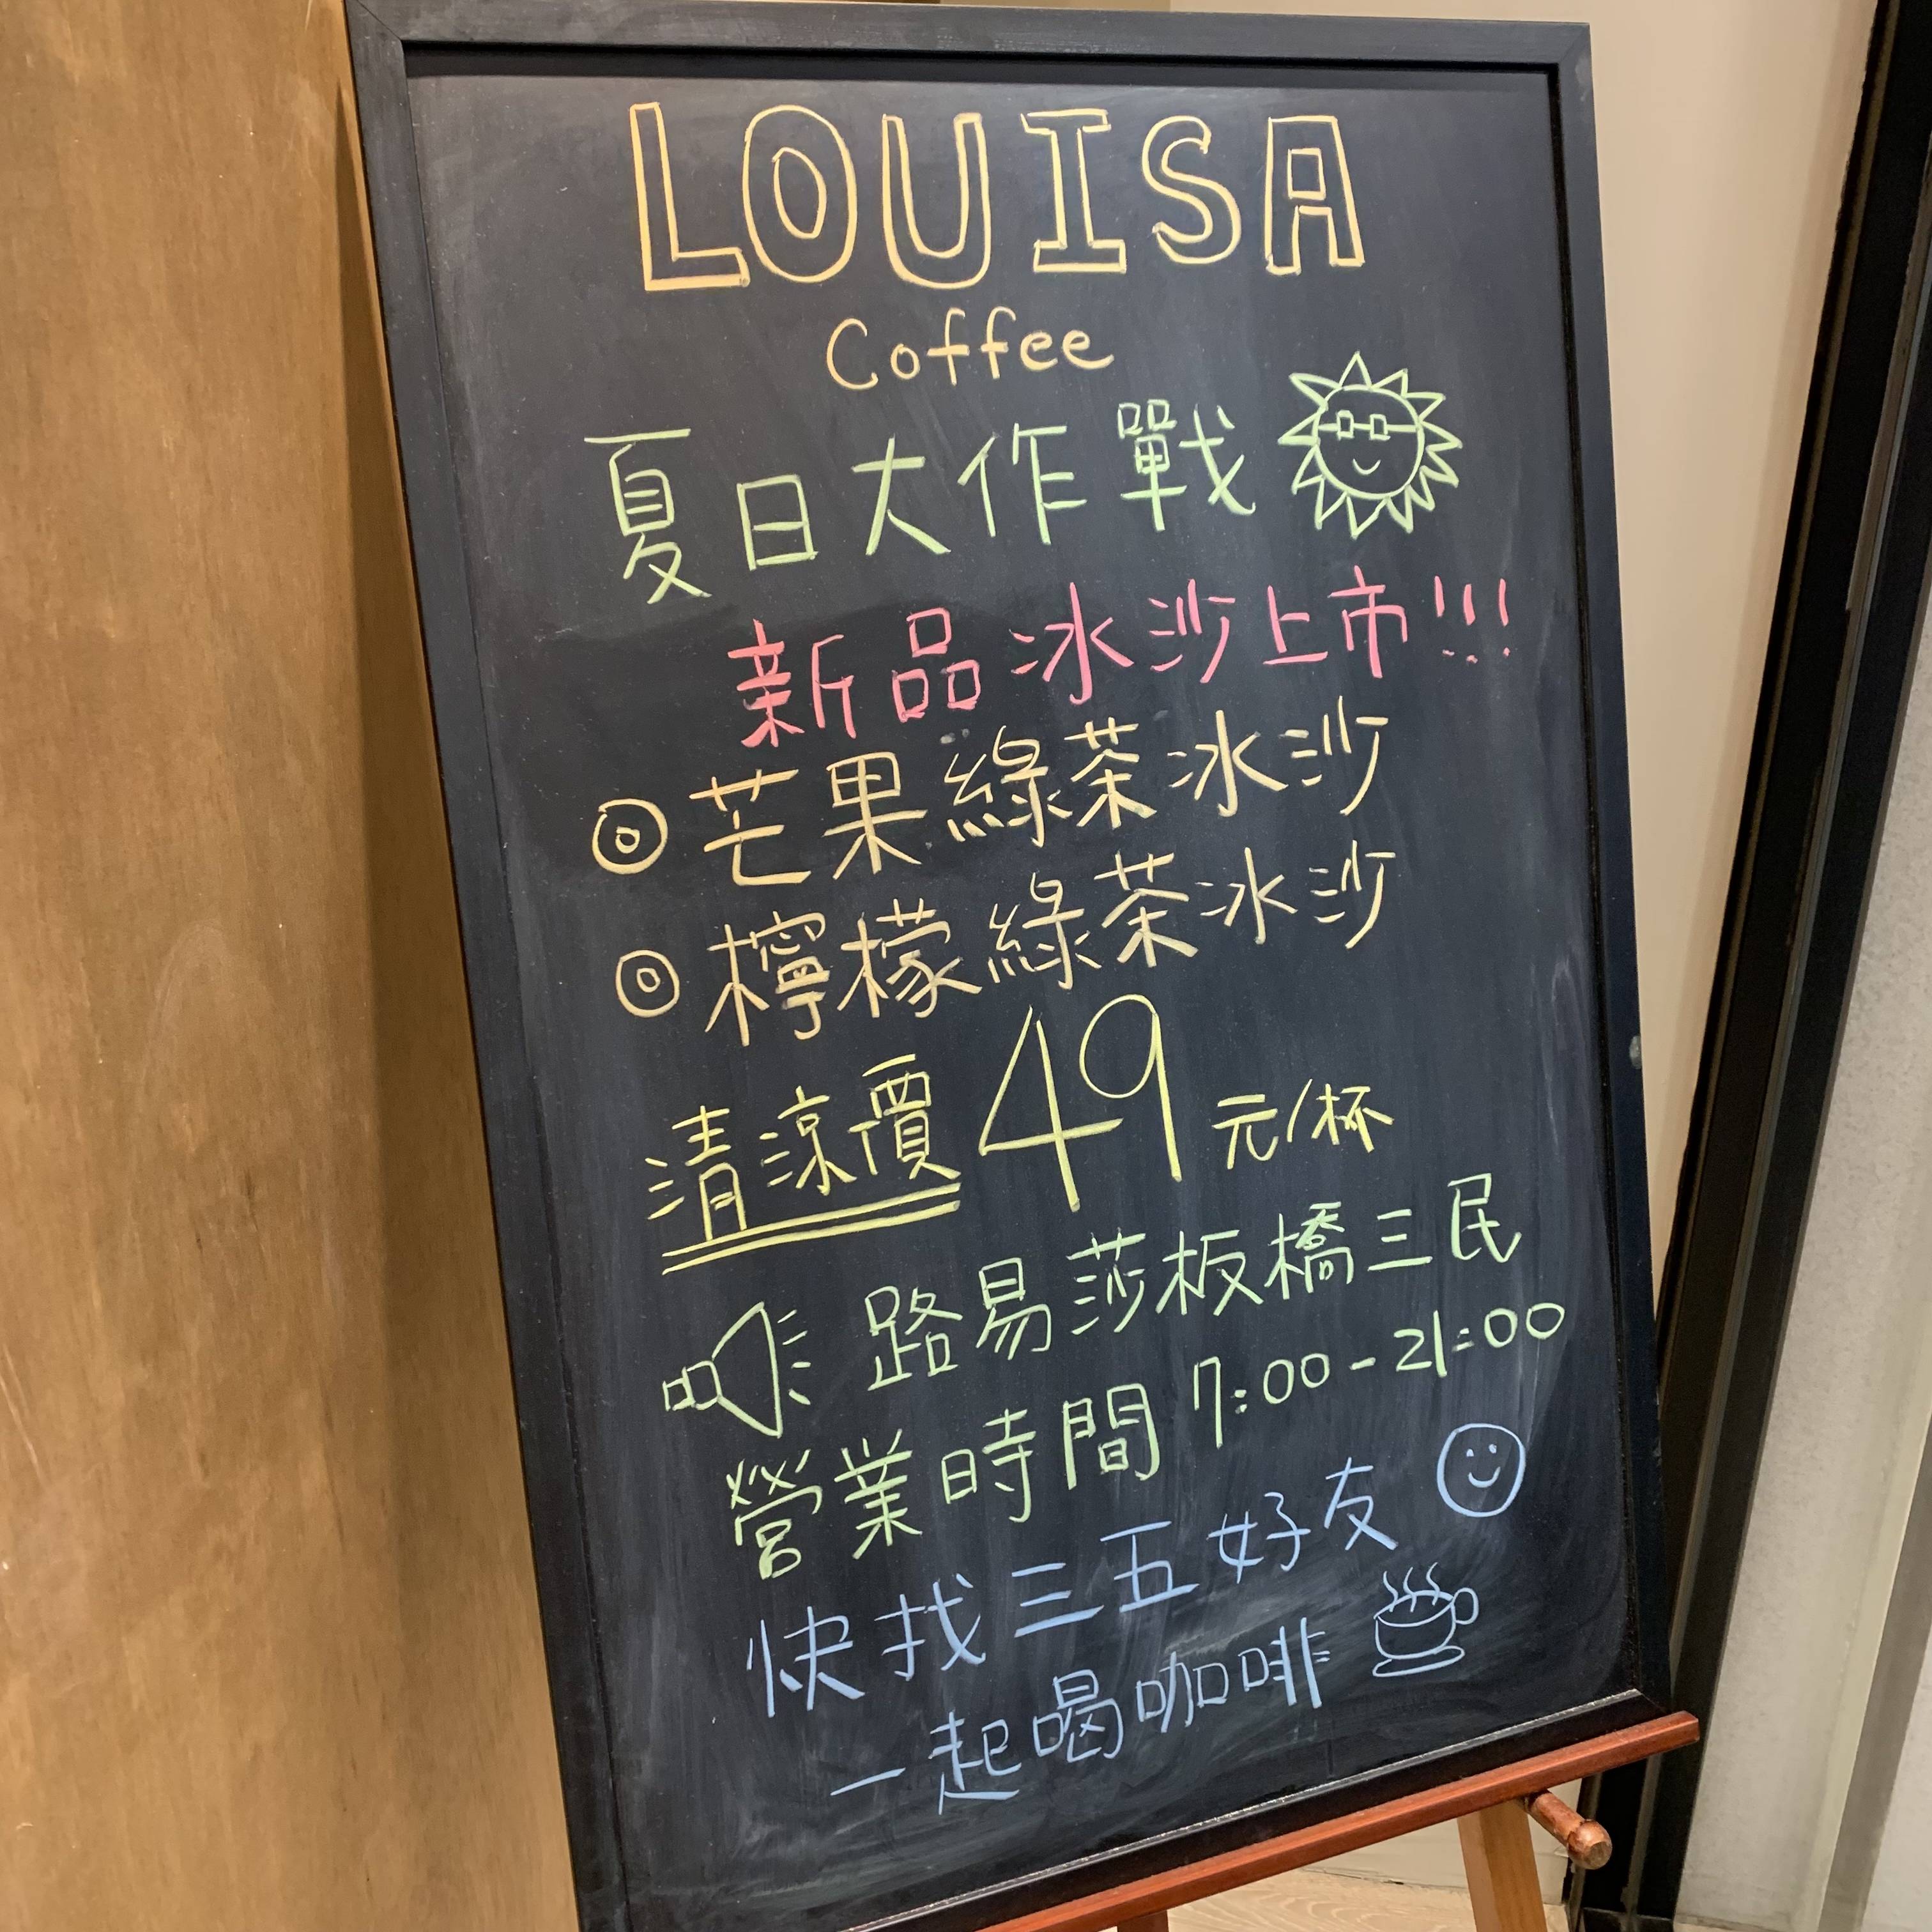 LOUISA
Coffee
夏日大作戰
新品冰沙上市!!!
◎芒果綠茶冰沙
◎檸檬綠茶冰沙
清涼價49元/杯
路易莎板橋三民
營業時間 7:00-21:00
快找三五好友
一起喝咖啡